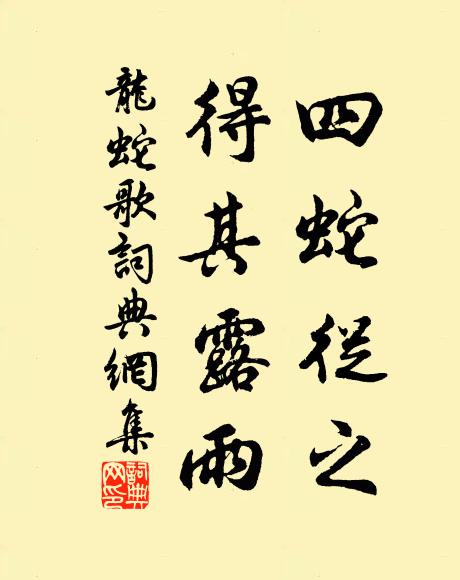 四蛇從之
得其露雨
龍蛇歌詞典網集
詞典网印